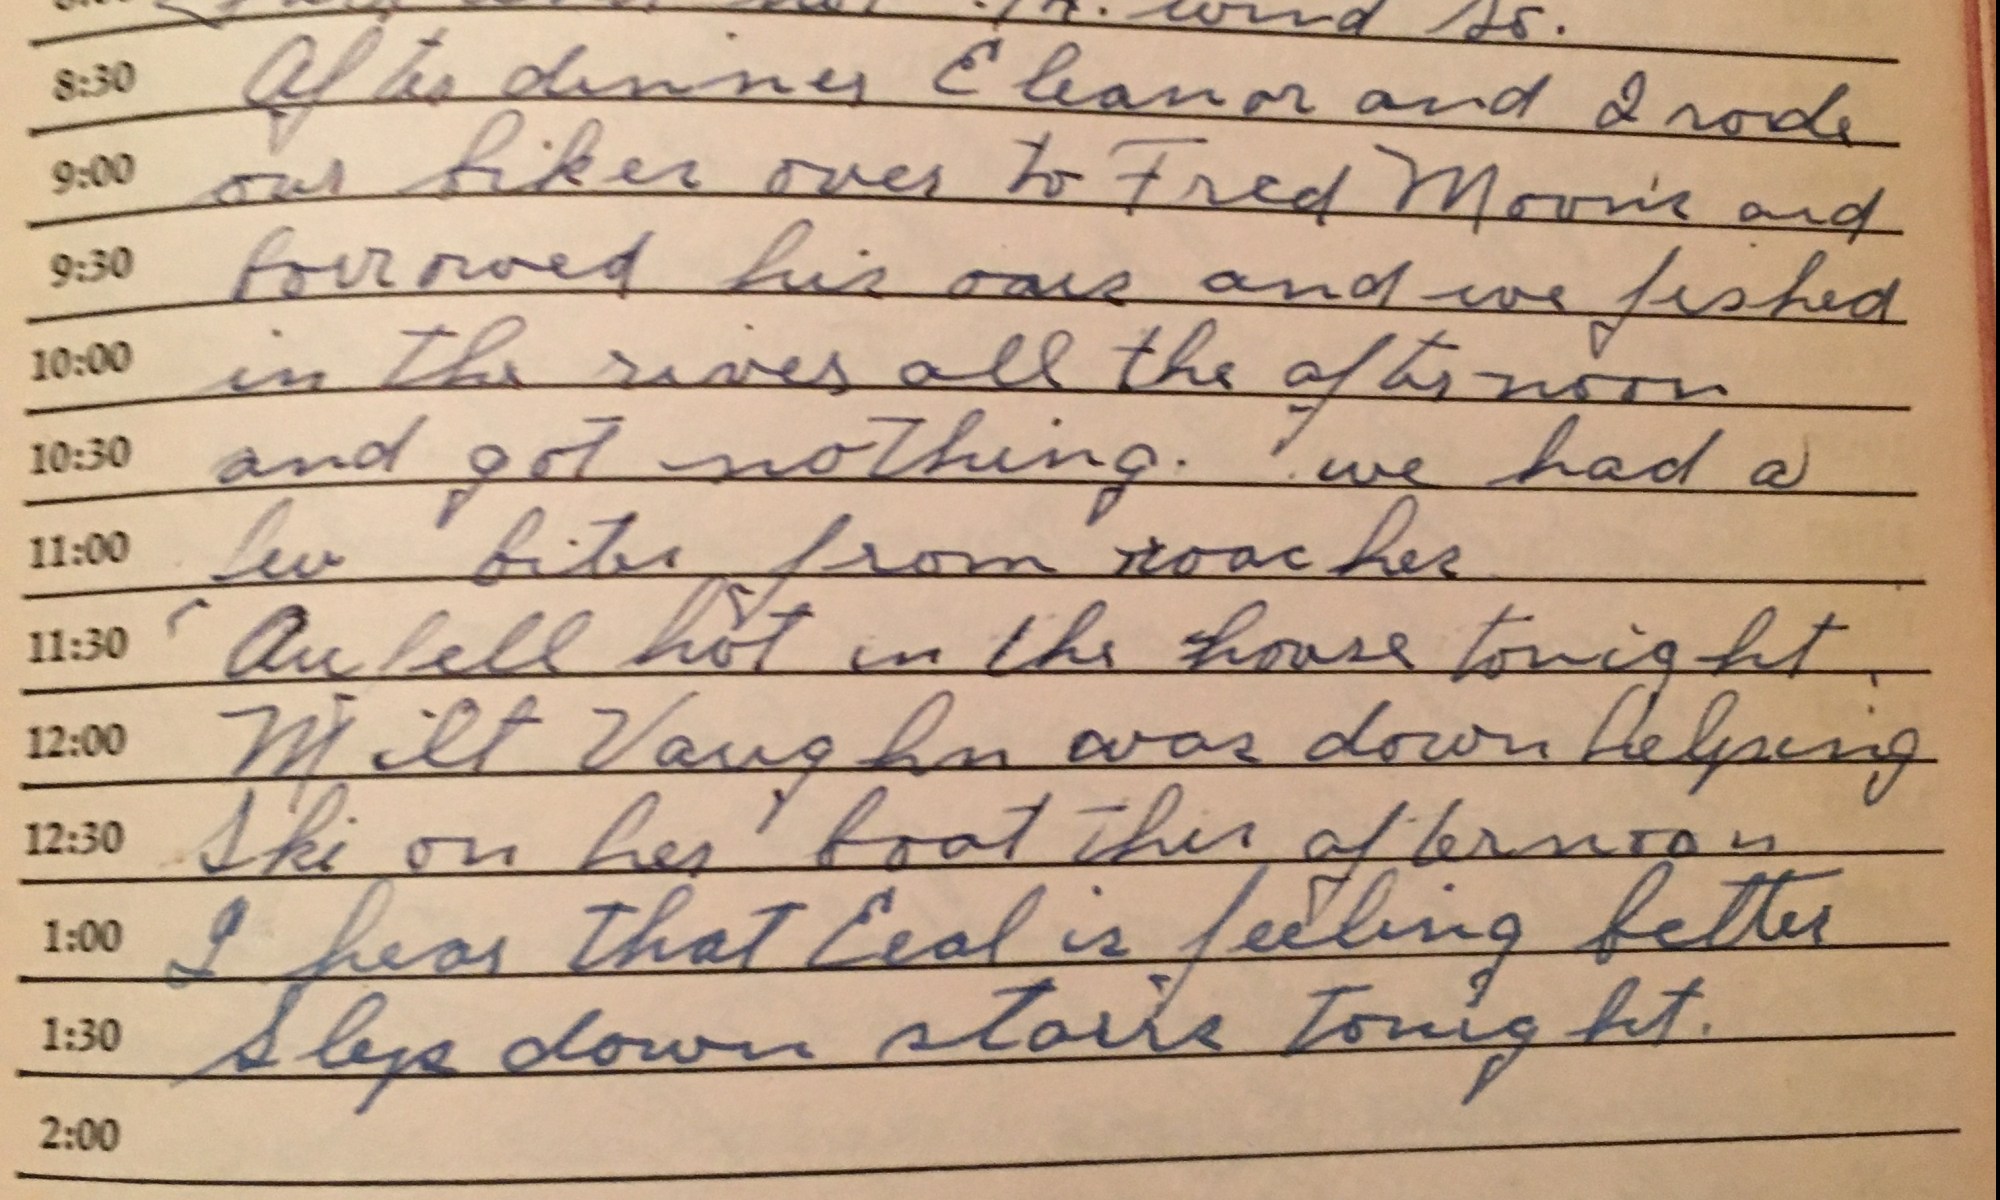 hot wind So.
8:30 After dinner Eleanor and I rode
9:00 our bikes over to Fred Moor's and
9:30 borrowed his oars and we fished
10:00 in the river all the afternoon
10:30 and got nothing. we had a
11:00 few bites from roaches
11:30 hot in the house tonight
12:00 Milt Vaughn was down helping
12:30 Ski on his boat this afternoon
1:00 I hear that is feeling better
1:30 down stairs tonight.
2:00